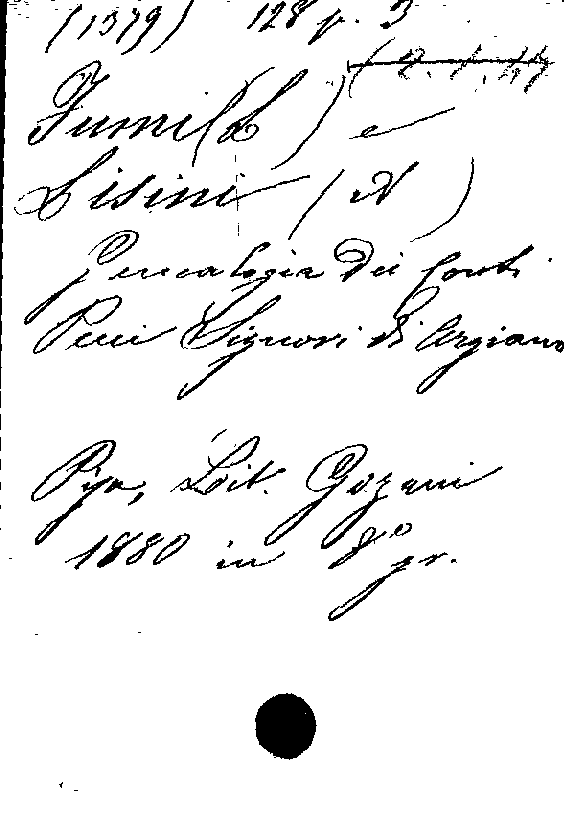 (1379) 128 p. 3
Fumi (L) e
Lisini (A)
Genealogia dei Conti
Pecci Signori di Argiano
Pisa, Lit. Gozani
1880 in 8° gr.